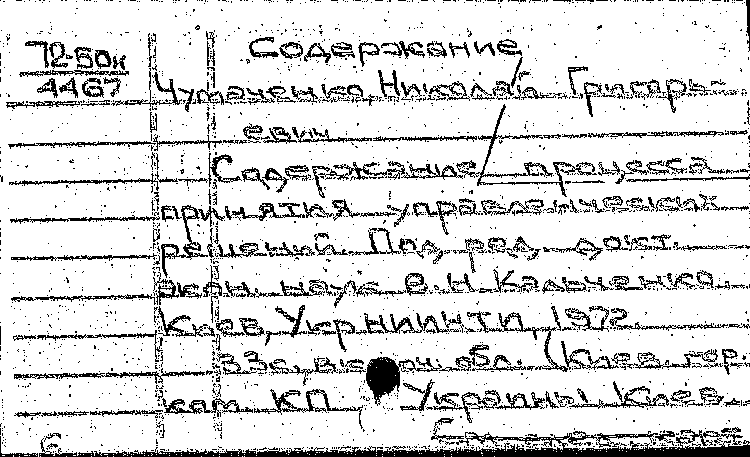 Содержание
72-50к
4467
Чумаченко, Николай Григорь-
евич
Содержание процесса
принятия управленческих
решений. Под ред. докт.
экон. наук В.Н. Кальченко.
Киев, УкрНИИНТИ, 1972.
33с, включ. обл. (Киев. гор.
ком. КП Украины. Киев.